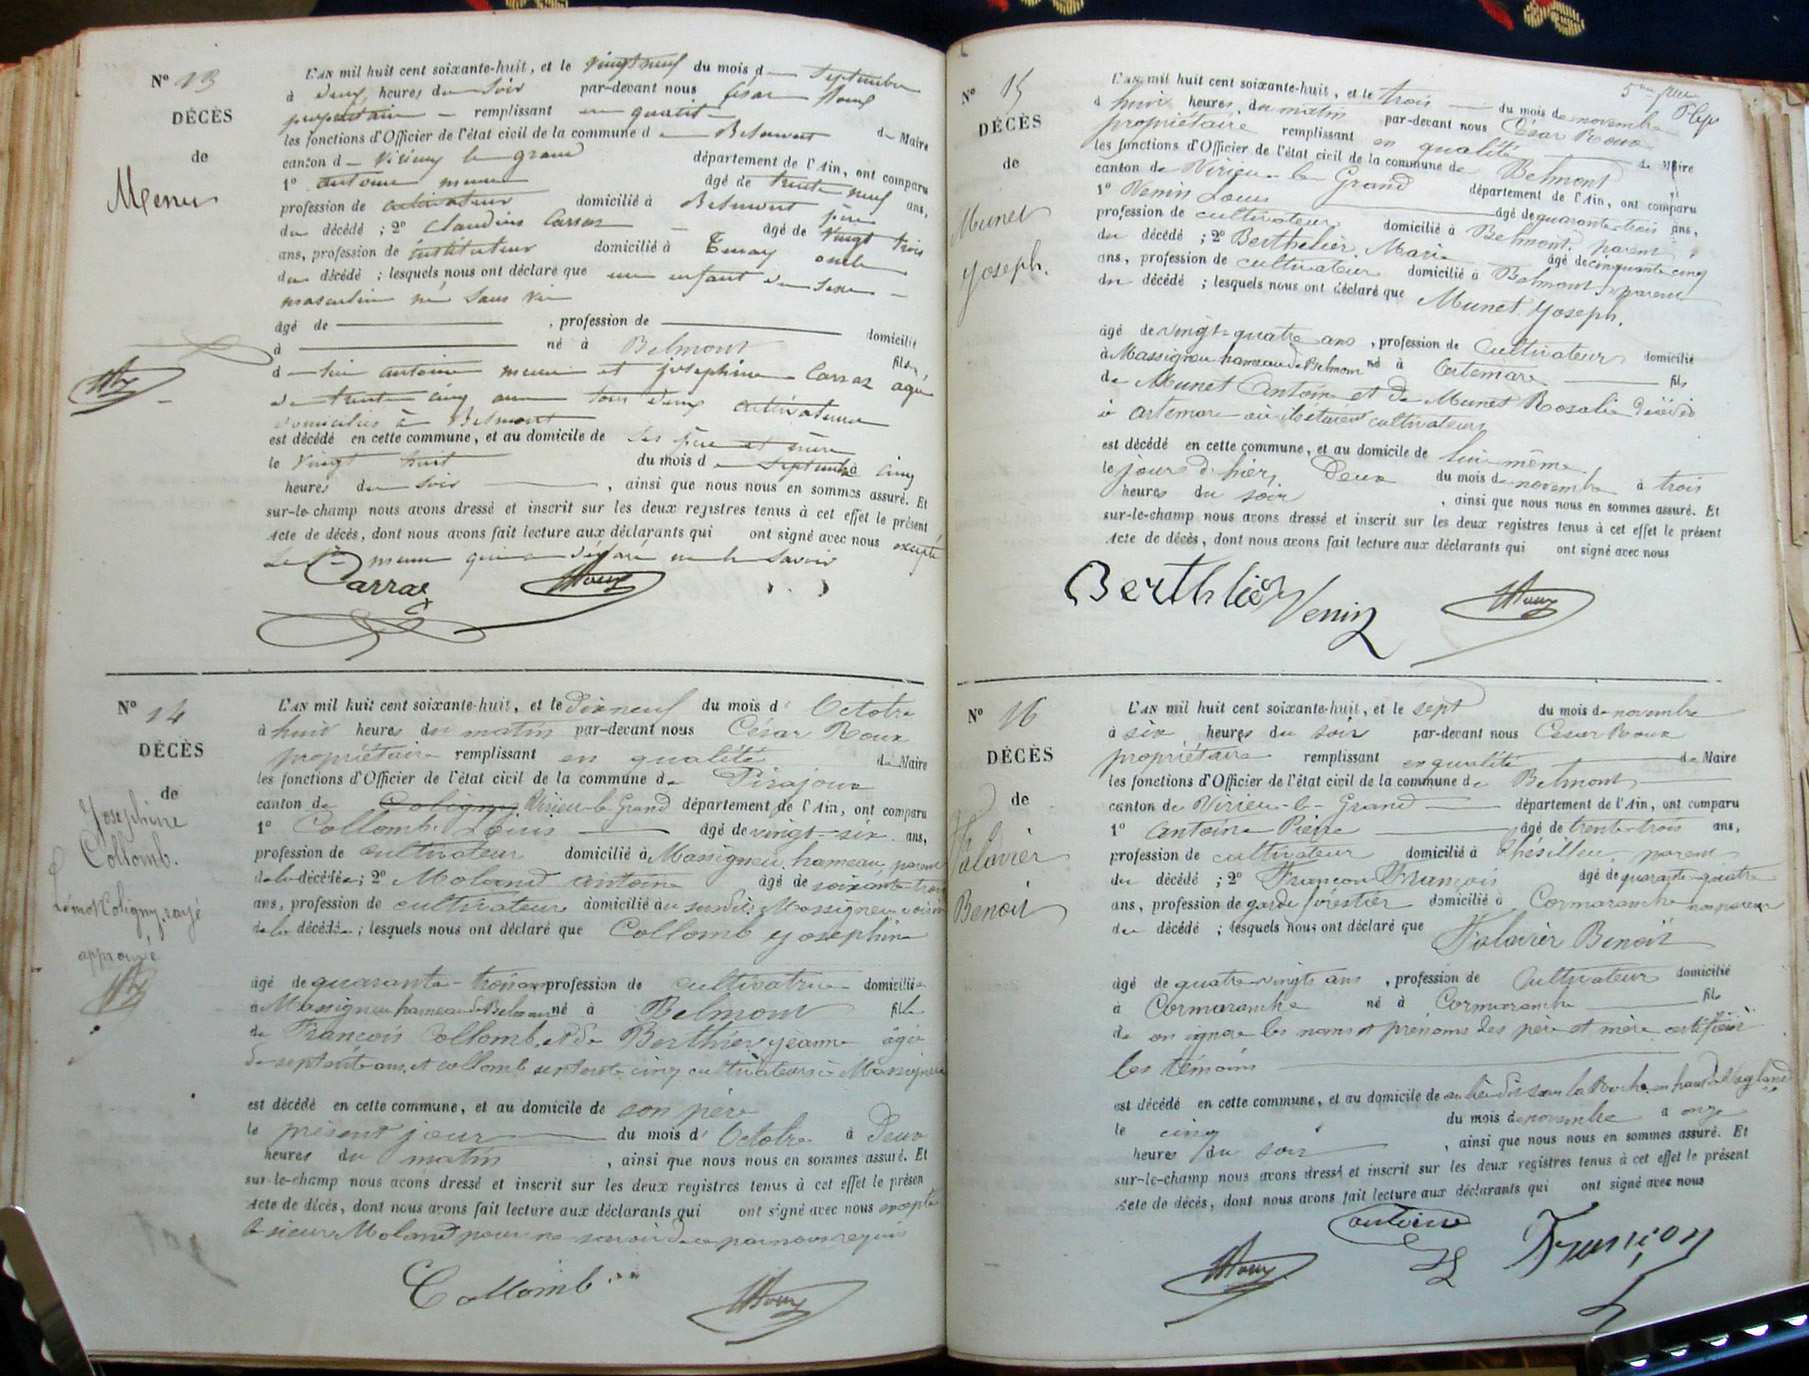 Nº 13
DÉCÈS
de
Menu
L'AN mil huit cent soixante-huit, et le vingt neuf du mois d septembre
à deux heures du soir par-devant nous César Roux
propriétaire remplissant en qualité de Maire
les fonctions d'Officier de l'état civil de la commune d Belmont
canton d Virieu le grand département de l'Ain, ont comparu
1º antoine âgé de trente neuf ans,
profession de cultivateur domicilié à Belmont père
du décédé ; 2º Claudius Carraz âgé de vingt trois
ans, profession de instituteur domicilié à Tenay oncle
du décédé ; lesquels nous ont déclaré que un enfant du sexe
masculin né sans vie
âgé de , profession de domicilié
à né à Belmont fils
d antoine et joséphine Carraz agée
de trente cinq ans tous deux cultivateurs
domiciliés à Belmont
est décédé en cette commune, et au domicile de ses père et mère
le vingt huit du mois d septembre à cinq
heures du soir , ainsi que nous nous en sommes assuré. Et
sur-le-champ nous avons dressé et inscrit sur les deux registres tenus à cet effet le présent
Acte de décès, dont nous avons fait lecture aux déclarants qui ont signé avec nous excepté
le Sr qui a déclaré ne le savoir
Carraz Roux
Nº 14
DÉCÈS
de
Josephine
Collomb.
Le mot Coligny rayé
approuvé
L'AN mil huit cent soixante-huit, et le dixneuf du mois d' Octobre
à huit heures du matin par-devant nous César Roux
propriétaire remplissant en qualité de Maire
les fonctions d'Officier de l'état civil de la commune de Pirajoux
canton de Coligny Virieu-le-Grand département de l'Ain, ont comparu
1º Collomb Louis âgé de vingt-six ans,
profession de cultivateur domicilié à Massigneu, hameau, parent
de la décédée ; 2º Moland antoine âgé de soixante-trois
ans, profession de cultivateur domicilié au susdit Massigneu voisin
de la décédée ; lesquels nous ont déclaré que Collomb Joséphine
âgé de quarante-trois ans profession de cultivatrice domiciliée
à Massigneu hameau de Belmont né à Belmont fille
de François Collomb, et de Berthier jeanne âgée
de septante ans, et collomb septante cinq cultivateurs à Massigneu
est décédé en cette commune, et au domicile de son père
le présent jour du mois d' Octobre à deux
heures du matin , ainsi que nous nous en sommes assuré. Et
sur-le-champ nous avons dressé et inscrit sur les deux registres tenus à cet effet le présen
Acte de décès, dont nous avons fait lecture aux déclarants qui ont signé avec nous excepté
le sieur Moland pour ne savoir de ce par nous requis
Collomb Roux
5me
Nº 15
DÉCÈS
de
Munet
Yoseph.
L'AN mil huit cent soixante-huit, et le trois du mois de novembre
à huit heures du matin par-devant nous César Roux
propriétaire remplissant en qualité de Maire
les fonctions d'Officier de l'état civil de la commune de Belmont
canton de Virieu-le-Grand département de l'Ain, ont comparu
1º Venin Louis âgé de quarante-trois ans,
profession de cultivateur domicilié à Belmont, parent
du décédé ; 2º Berthelier Marie âgé de cinquante cinq
ans, profession de cultivateur domicilié à Belmont, parent
du décédé ; lesquels nous ont déclaré que Munet Yoseph,
âgé de vingt-quatre ans , profession de Cultivateur domicilié
à Massigneu hameau de Belmont né à Artemare fils
de Munet Antoine et de Munet Rosalie décédés
à Artemare où ils étaient cultivateurs
est décédé en cette commune, et au domicile de lui-même,
le jour d'hier, deux du mois de novembre à trois
heures du soir , ainsi que nous nous en sommes assuré. Et
sur-le-champ nous avons dressé et inscrit sur les deux registres tenus à cet effet le présent
Acte de décès, dont nous avons fait lecture aux déclarants qui ont signé avec nous
Berthlier Venin Roux
Nº 16
DÉCÈS
de
Falavier
Benoit
L'AN mil huit cent soixante-huit, et le sept du mois de novembre
à six heures du soir par-devant nous César Roux
propriétaire remplissant en qualité de Maire
les fonctions d'Officier de l'état civil de la commune de Belmont
canton de Virieu-le-Grand département de l'Ain, ont comparu
1º Antoine Pierre âgé de trente-trois ans,
profession de cultivateur domicilié à Thésilieu, parent
du décédé ; 2º Françon François âgé de quarante-quatre
ans, profession de garde forestier domicilié à Cormaranche non parent
du décédé ; lesquels nous ont déclaré que Falavier Benoit
âgé de quatre-vingts ans , profession de Cultivateur domicilié
à Cormaranche né à Cormaranche fils
de on ignore les noms et prénoms des père et mère
les témoins
est décédé en cette commune, et au domicile de au lieu dit sous la Roche en haut de
le cinq du mois de novembre à onze
heures du soir , ainsi que nous nous en sommes assuré. Et
sur-le-champ nous avons dressé et inscrit sur les deux registres tenus à cet effet le présent
Acte de décès, dont nous avons fait lecture aux déclarants qui ont signé avec nous
Roux antoine Françon